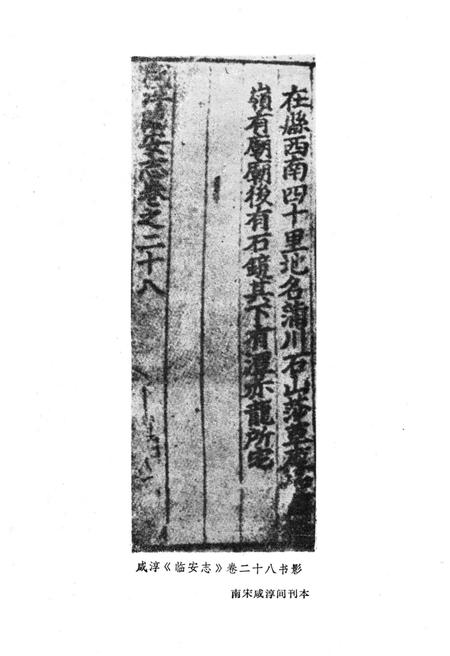 在縣西南四十里地名蒲川石山莎草
嶺有廟廟後有石鏡其下有潭亦龍所宅
咸淳臨安志卷之二十八
咸淳《临安志》卷二十八书影
南宋咸淳间刊本